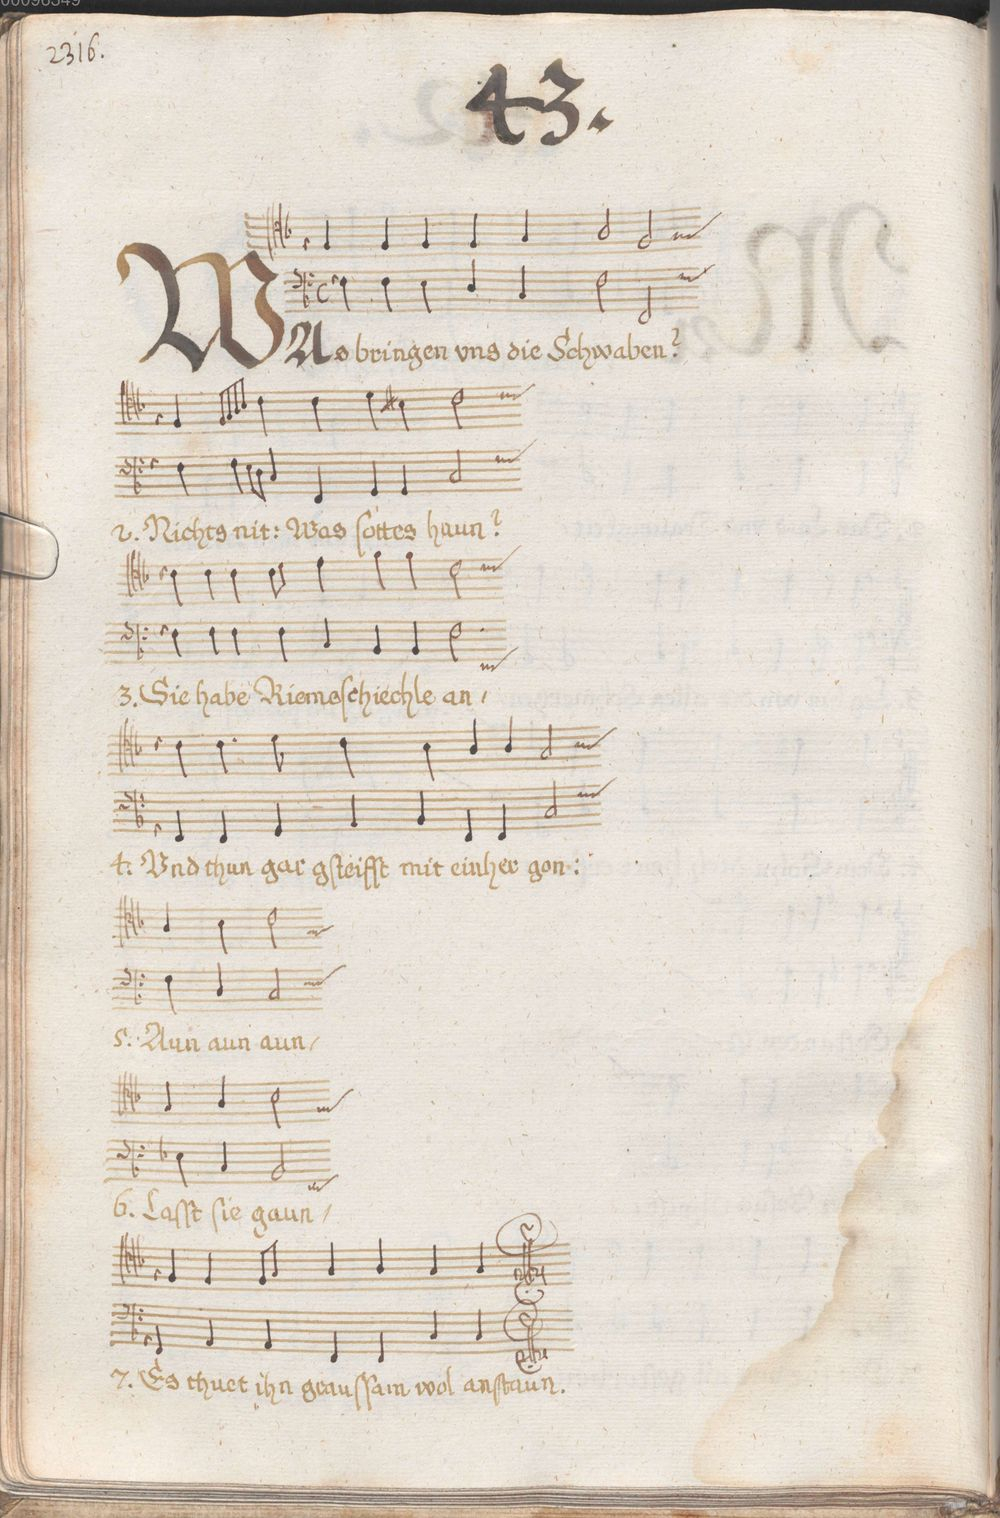 00096349
2316.
43.
WAs bringen vns die Schwaben?
2. Nichts nit: Was sottes haun?
3. Sie habē Riemeschiechle an /
4. Vnd thun gar gsteifft mit einher gon:
5. Aun aun aun /
6. Lasst sie gaun /
7. Es thuet ihn graussam wol anstaun.